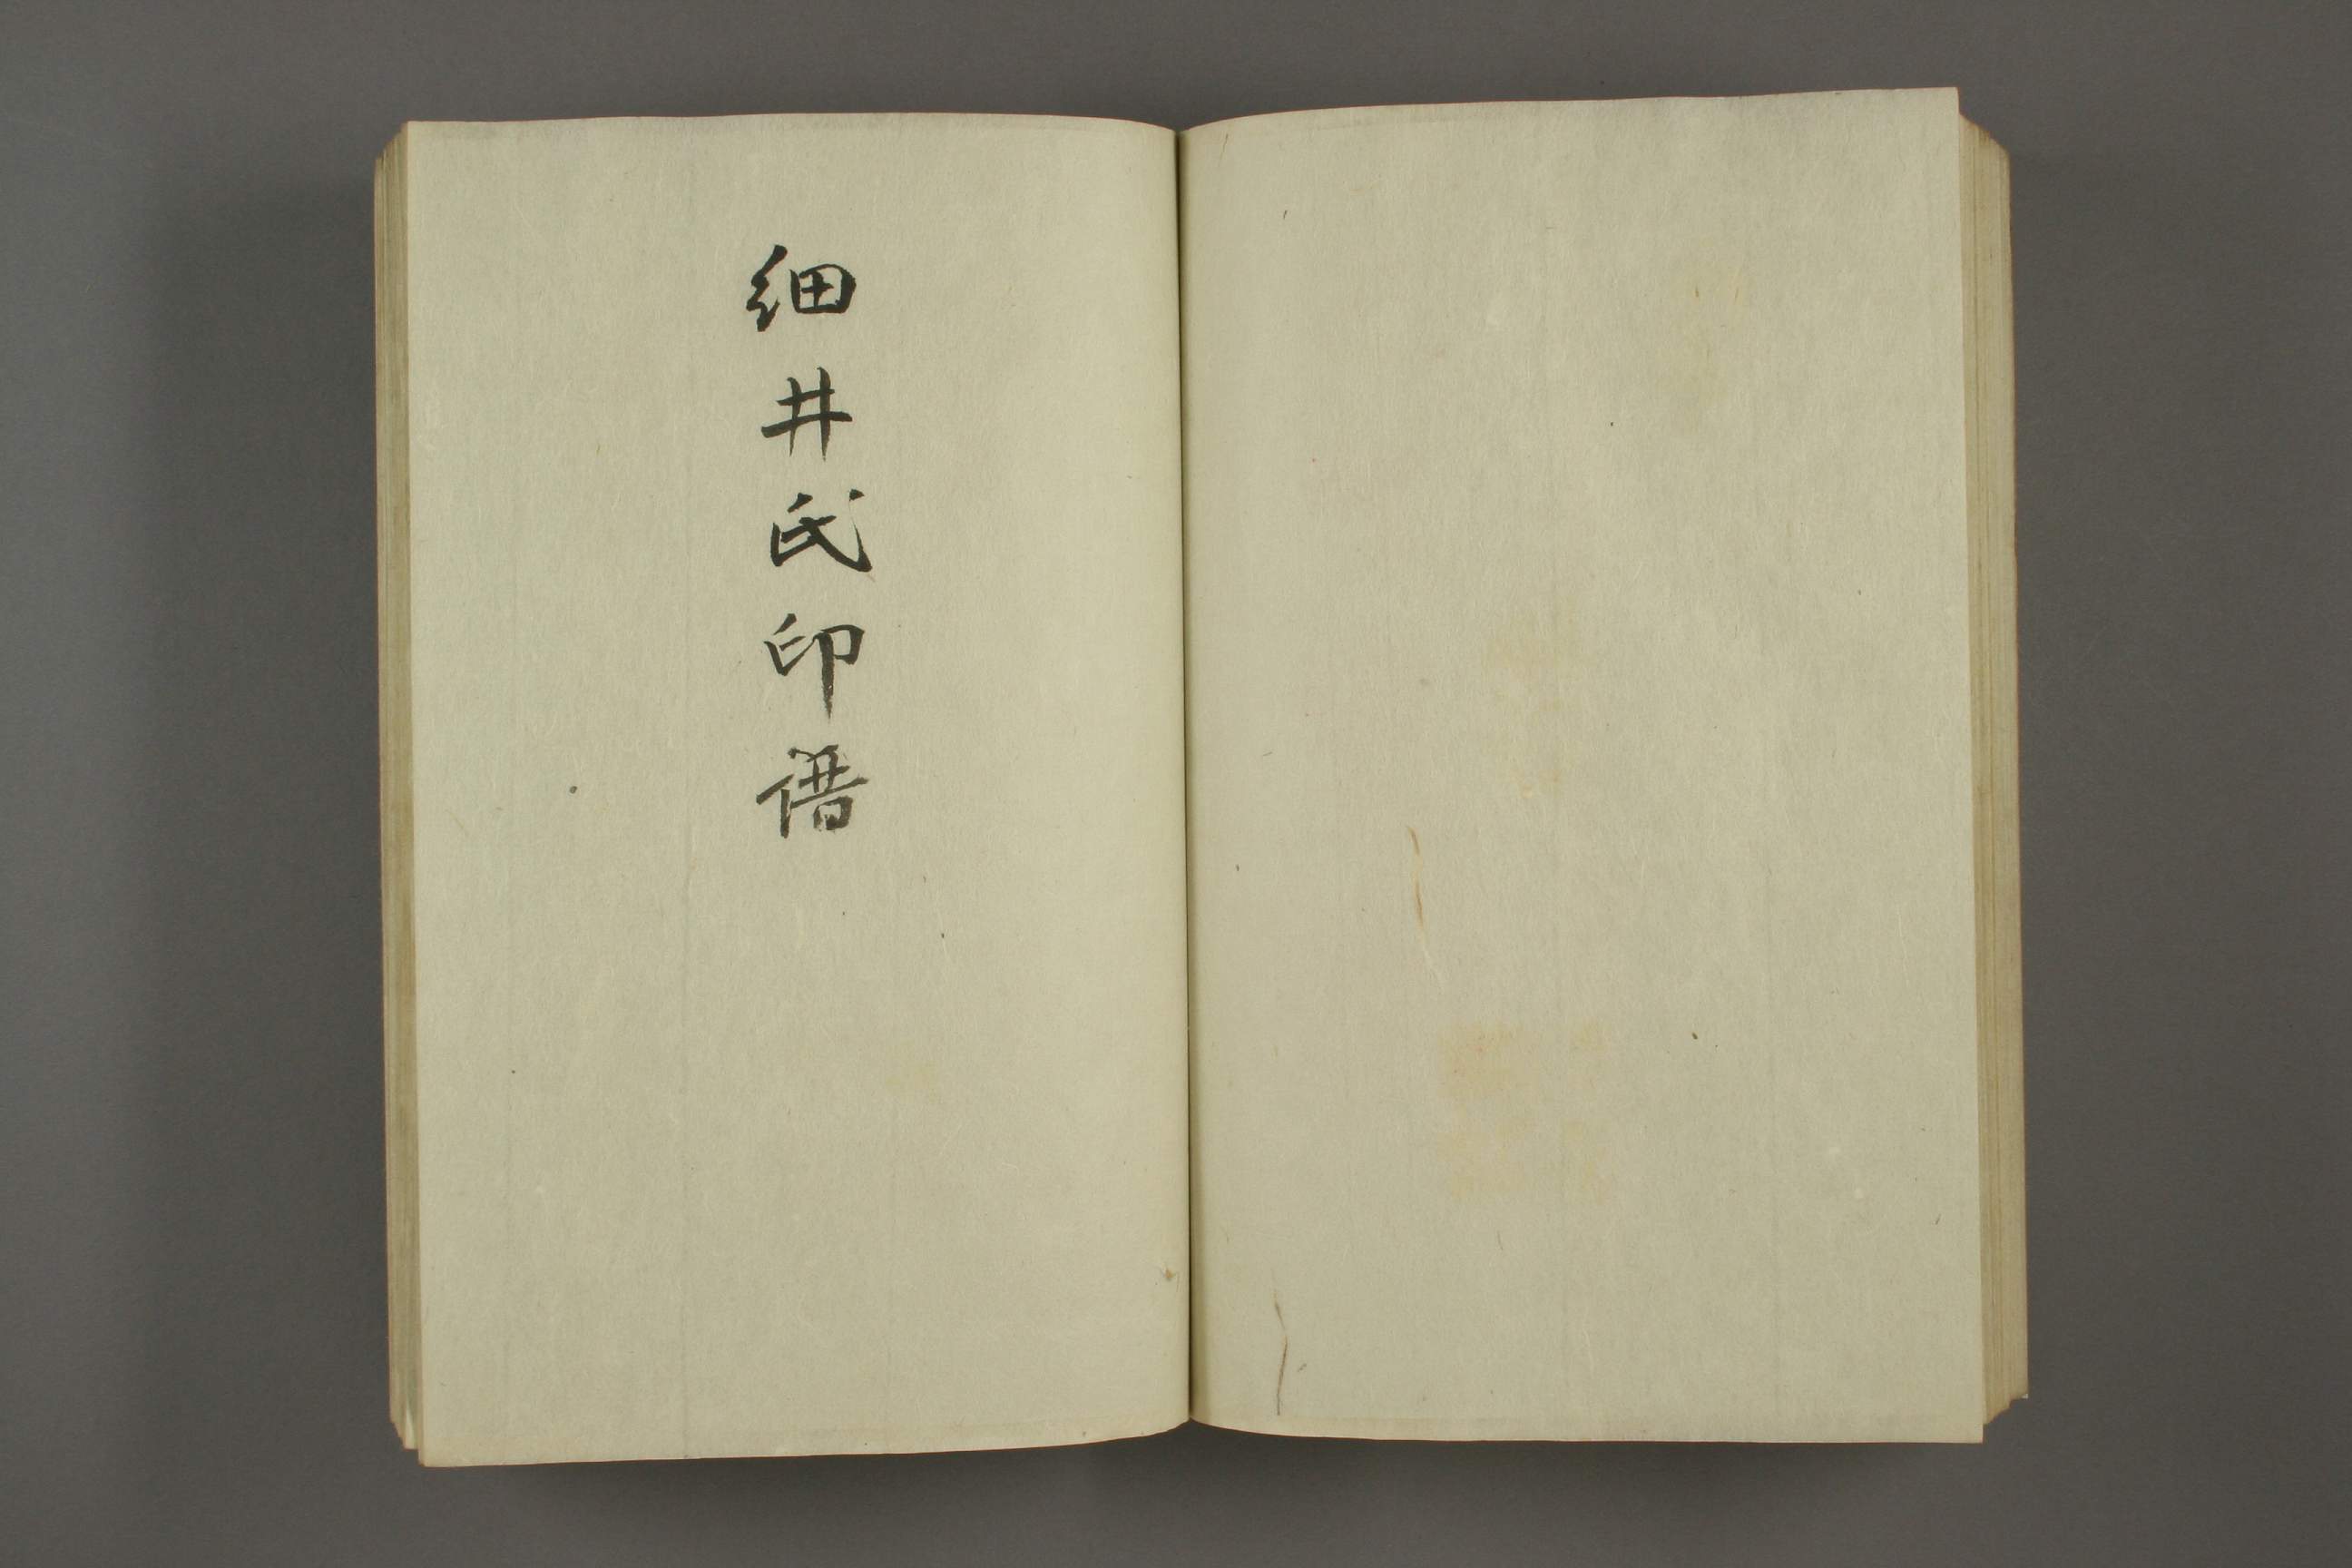 細井氏印譜